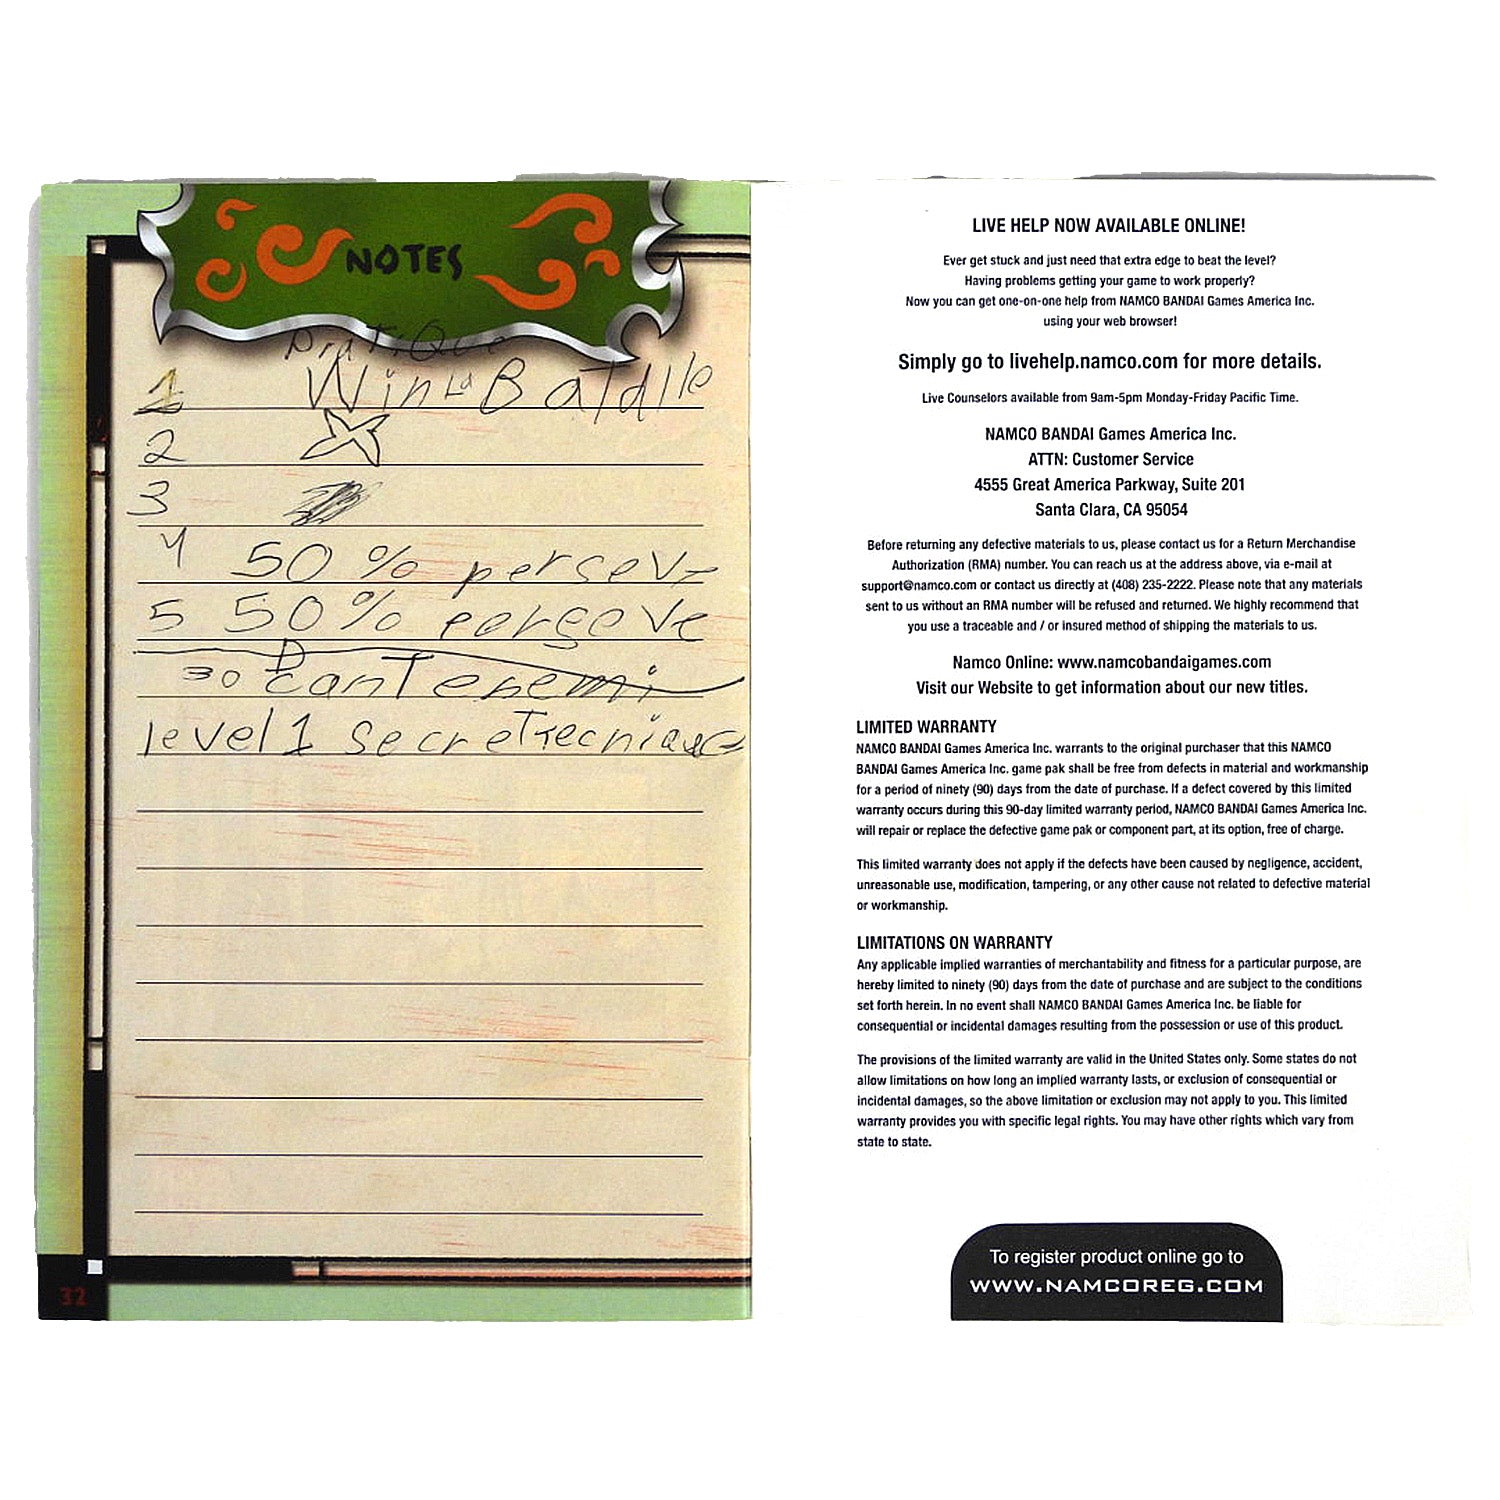 NOTES
PratiQue
1 Win La Batdlle
2
3
4 50 % perseve
5 50% perseve
30 D
level 1 secret
32
LIVE HELP NOW AVAILABLE ONLINE!
Ever get stuck and just need that extra edge to beat the level?
Having problems getting your game to work properly?
Now you can get one-on-one help from NAMCO BANDAI Games America Inc.
using your web browser!
Simply go to livehelp.namco.com for more details.
Live Counselors available from 9am-5pm Monday-Friday Pacific Time.
NAMCO BANDAI Games America Inc.
ATTN: Customer Service
4555 Great America Parkway, Suite 201
Santa Clara, CA 95054
Before returning any defective materials to us, please contact us for a Return Merchandise
Authorization (RMA) number. You can reach us at the address above, via e-mail at
support@namco.com or contact us directly at (408) 235-2222. Please note that any materials
sent to us without an RMA number will be refused and returned. We highly recommend that
you use a traceable and / or insured method of shipping the materials to us.
Namco Online: www.namcobandaigames.com
Visit our Website to get information about our new titles.
LIMITED WARRANTY
NAMCO BANDAI Games America Inc. warrants to the original purchaser that this NAMCO
BANDAI Games America Inc. game pak shall be free from defects in material and workmanship
for a period of ninety (90) days from the date of purchase. If a defect covered by this limited
warranty occurs during this 90-day limited warranty period, NAMCO BANDAI Games America Inc.
will repair or replace the defective game pak or component part, at its option, free of charge.
This limited warranty does not apply if the defects have been caused by negligence, accident,
unreasonable use, modification, tampering, or any other cause not related to defective material
or workmanship.
LIMITATIONS ON WARRANTY
Any applicable implied warranties of merchantability and fitness for a particular purpose, are
hereby limited to ninety (90) days from the date of purchase and are subject to the conditions
set forth herein. In no event shall NAMCO BANDAI Games America Inc. be liable for
consequential or incidental damages resulting from the possession or use of this product.
The provisions of the limited warranty are valid in the United States only. Some states do not
allow limitations on how long an implied warranty lasts, or exclusion of consequential or
incidental damages, so the above limitation or exclusion may not apply to you. This limited
warranty provides you with specific legal rights. You may have other rights which vary from
state to state.
To register product online go to
WWW.NAMCOREG.COM